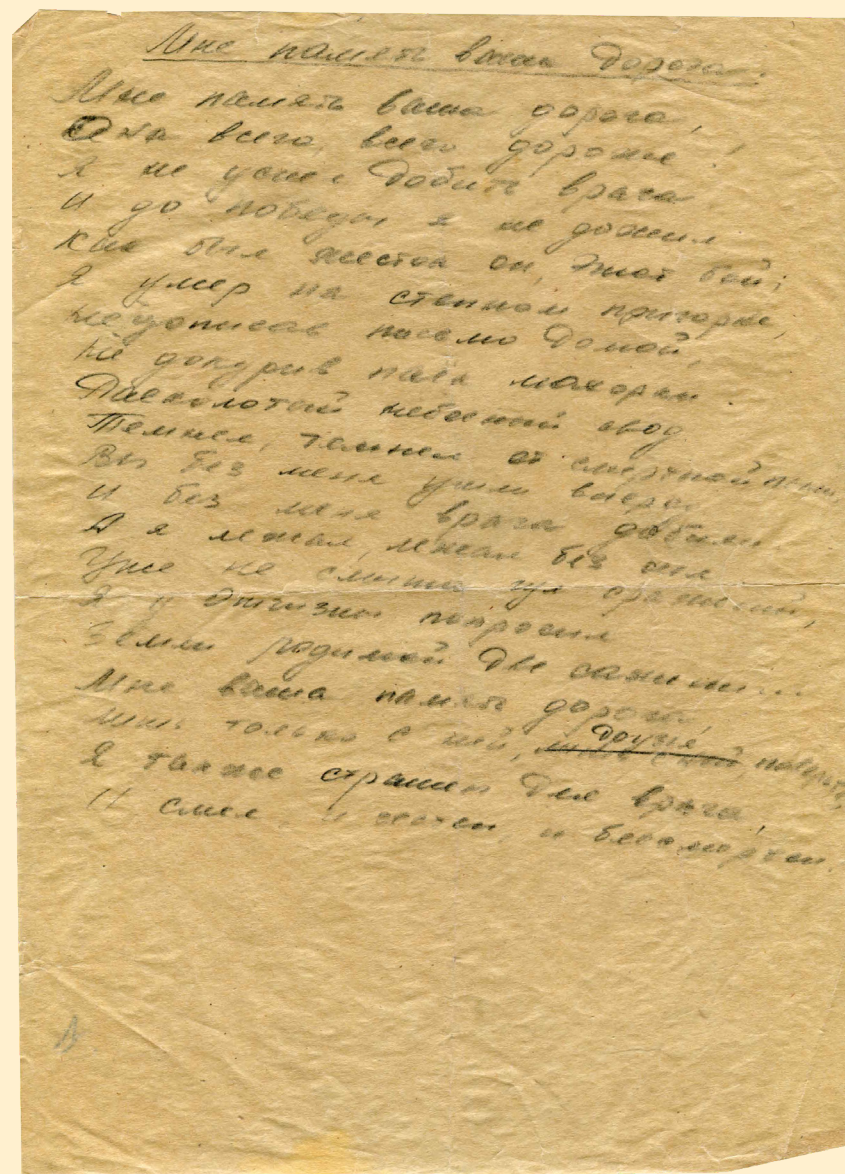 Мне память ваша дорога.
Мне память ваша дорога,
Она всего, всего дороже!
Я не успел добить врага
И до победы я не дожил
Как был жесток он, этот бой;
Я умер на степном пригорке,
Не дописав письмо домой,
Не докурив пачк махорки.
Расколотый небесный свод
Темнел, темнел от смертной пыли,
Вы без меня ушли вперед
И без меня врага добили
А я лежал, лежал без сил
Уже не слыша гул сражений,
Я у Отчизны попросил
Земли родимой две сажени...
Мне ваша память дорога,
Лишь только с ней, друзья, поверьте,
Я также страшен для врага,
И смел, и и бессмертен.